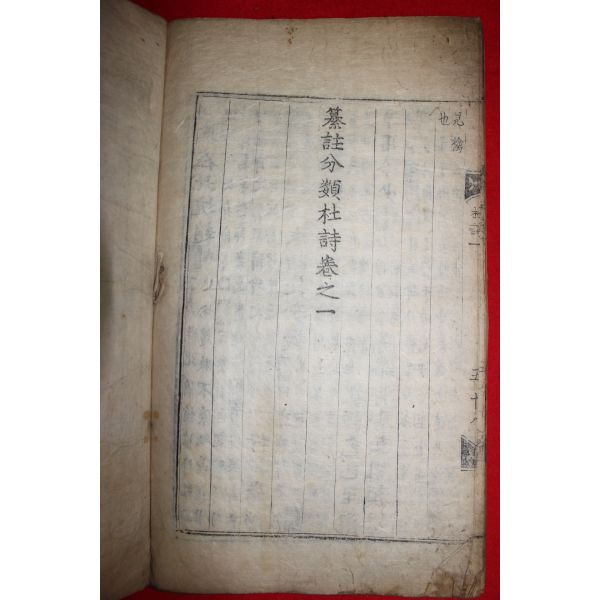 也
纂註分類杜詩卷之一
杜詩一
五十八